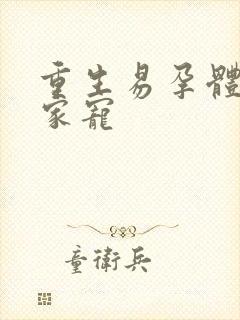 重生易孕體
家寵
童衛兵